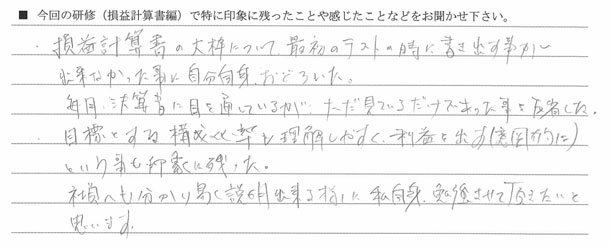 ■ 今回の研修（損益計算書編）で特に印象に残ったことや感じたことなどをお聞かせ下さい。
・損益計算書の大枠について最初のテストの時に書き出す事が
出来なかった事に自分自身、おどろいた。
毎月、決算書に目を通しているが、ただ見ているだけであった事を反省した。
・目標とする構成比型も理解しやすく、利益を出す(意図的に)
という事も印象に残った。
社員へも分かり易く説明出来る様に私自身、勉強させて頂きたいと
思います。